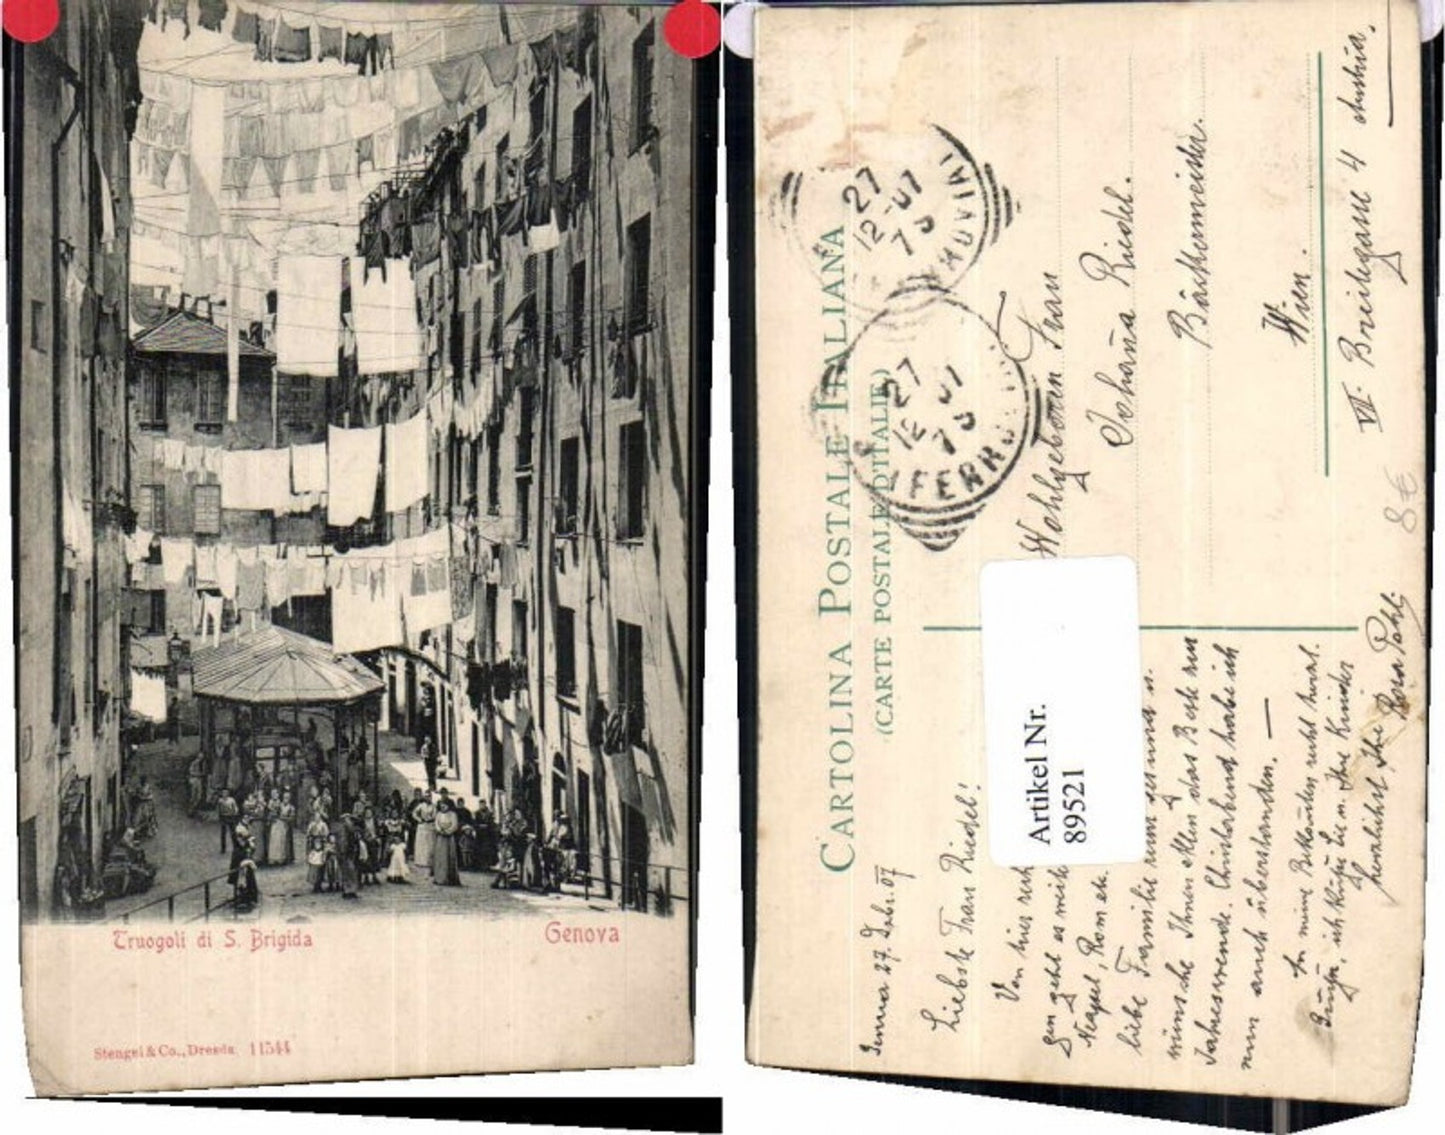 Truogoli di S. Brigida
Genova
Stengel & Co., Dresda 11544
CARTOLINA POSTALE ITALIANA
(CARTE POSTALE D'ITALIE)
27
12-07
7 S
27
12 07
7 S
FERR
Wohlgeboren Frau
Johanna Riedel.
Bäckermeister.
Wien.
VII. Breitegasse 4 Austria.
8 €
Artikel Nr.
89521
Genua 27. Dzbr. 07
Liebste Frau Riedel!
Von hier
gen geht es
Neapel, Rom etc.
liebe Familie
wünsche Ihnen Allen das Beste zur
Jahreswende. Christabend habe ich
nun auch überstanden. —
An meine Bekannten recht herzl.
Grüße, ich küsse Sie m. Ihre Kinder
herzlichst Ihre